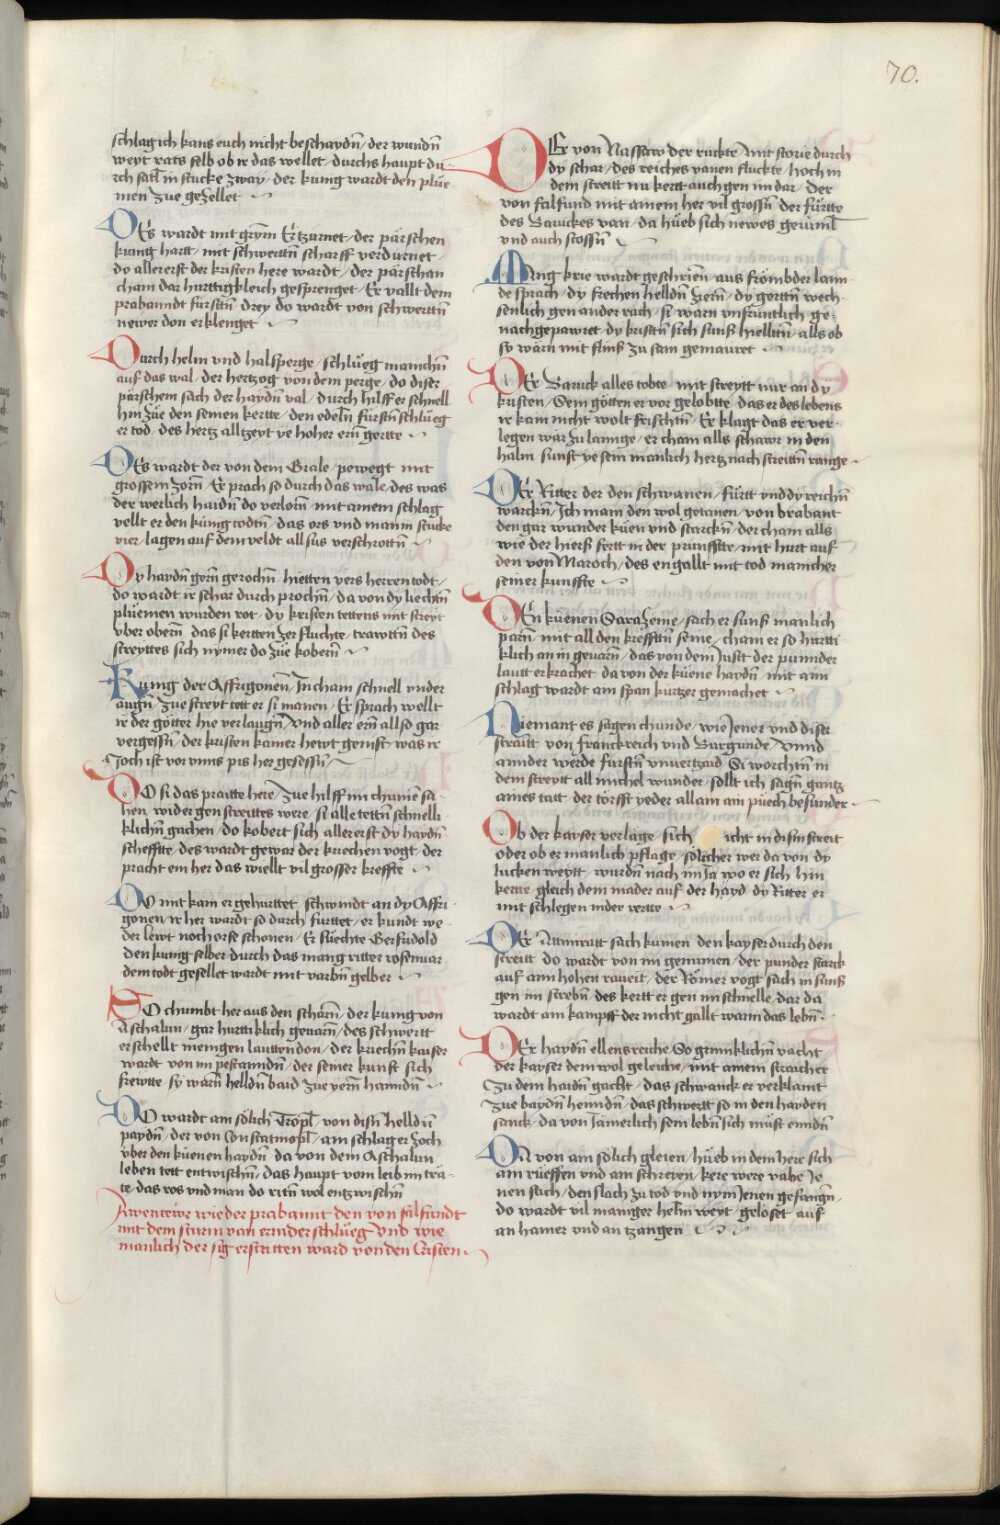 70.
schlag ich kans euch nicht beschaydn̄ / der wundn̄
weyt rats selb ob ir das wellet / durchs haupt du-
rch satl in stucke zway / der kunig wardt den plüe
men züe gesellet
DEs wardt mit grym̄ Ertzurnet / der pärschen
kunig hartt / mit schwerttn̄ scharff verdurnet
do allererst der kristen here wardt / der pärschan
cham dar hurttigkleich gesprenget / Er vallt dem
prabanndt fürsttn̄ drey do wardt von schwerttn̄
newer don erklenget
Durch helm vnd halsperge / schlüeg manchn̄
auf das wal / der hertzog von dem perge / do diser
pärschem sach der haydn̄ val / durch hilff er schnell
hin züe den seinen kertte / den edeln̄ fürstn̄ schlüeg
er tod / des hertz alltzeyt ye hoher ern̄ gertte
DEs wardt der von dem Grale / pewegt mit
grossem zorn̄ / Er prach so durch das wale / des was
der werlich haidn̄ do verlorn̄ / mit ainem schlag
vellt er den künig todtn̄ / das ors vnd mann stucke
vier / lagen auf dem veldt all sus verschrottn̄
Dy haydn̄ gern̄ gerochn̄ / hietten vers herren todt /
do wardt ir schar durch prochn̄ / da von dy liechtn̄
plüemen wurden rot / dy kristen tettens mit streyt
vber obern̄ das si kertten zer fluchte / trawttn̄ des
streyttes sich nymer do züe kobern̄
Kunig der Affrigonen / In cham schnell vnder
augn̄ / züe streyt tett er si manen / Er sprach wellt
ir der götter hie verlaugn̄ / Vnd aller ern̄ allso gar
vergessn̄ / der kristen kainer hewt genist / was ir
Joch ist vor vnns pis her gesessn̄
DO si das praitte here / züe hilff im chumē sa
hen / wider gen streittes were / si alle tettn̄ schnelli-
klichn̄ gachen / do kobert sich allererst dy haydn̄
schefftte / des wardt gewar der kriechen vogt / der
pracht ein her das wiellt vil grosser kreffte
DO mit kam er gehurttet / schwindt an dy Affri-
gonen / ir her wardt so durch furttet / er kundt we-
der lewt noch orse schonen / Er süechte Gerfridold
den kunig selber durch das manig ritter rosenvar
dem todt gesellet wardt mit varbn̄ gelber
SO chumbt her aus den scharn̄ / der kunig von
Aschalun / gar hurttiklich gevarn̄ / des schwertt
erschellt menigen lauttendon / der kriechn̄ kaiser
wardt von im pestanndn̄ / der seiner kunst sich
frewtte / sy warn̄ helldn̄ baid züe yern̄ hanndn̄
DO wardt ain solich Tropl̄ / von disn̄ helldn̄
paydn̄ / der von Constatinopl̄ / ain schlag er zoch
vber den küenen haydn̄ / da von dem Aschalun
leben tett entwischn̄ / das haupt vom leib im trä-
te / das ros vnd man do ritn̄ wol entzwischn̄
Awentewr wie der prabannt den von falfundt
mit dem sturm van ernider schlüeg Vnd wie
manlich der sig erstritten ward von den Cristen
DEr von Nassaw der ruckte / mit storie durch
dy schar / des reiches vanen fluckte / hoch in
dem streitt nu kertt auch gen im dar / der
von falfund mit ainem her vil grossn̄ / der fürtte
des Baruckes van / da hüeb sich newes gerüml
vnd auch stossn̄
Manig krie wardt geschrien̄ / aus frömbder lann-
de sprach / dy frechen helldn̄ zieren̄ / dy gorttn̄ wech-
senlich gen ander rach / si warn vnfrüntlich ge-
nachgepawret / dy kristn̄ sich sunst hielltn̄ / alls ob
sy wärn mit flins zu sam gemauret
DEr Baruck alles tobte / mit streytt nur an dy
kristen / Sein götten er vor gelobtte / das er des lebens
ir kain nicht wolt fristn̄ / Er klagt das er ver-
legen wär zu lannge / er cham alls schawr in den
halm / sunst ye sein manlich hertz nach streittn̄ range
DEr Ritter der den schwanen / fürtt vnd dy reichn̄
warckn̄ / Ich main den wol getanen / von brabant
den gar wunder küen vnd starckn̄ / der cham alls
wie der hiers fertt in der prunfftte / mit hurt auf
den von Maroch / des engallt mit tod maincher
seiner kunffte
DEn küenen Sarazeine / sach er sunst manlich
parn̄ / mit all den krefftn̄ seine / cham er so hurtti-
klich an in gevarn̄ / das von dem Justt der punnder
lautt erkrachet / da von der küene haydn̄ / mit ann
schlag wardt ain span kurtzer gemachet
Niemant es sagen chunde / wie Jener vnd diser
straitt / von franckreich vnd Burgunde / Vnnd
annder werde fürstn̄ vnuertzaid / Si worchtn̄ in
dem streytt all michel wunder / sollt ich sagn̄ gantz
aines tatt / der törfft yeder allain ain püech besunder
Ob der kayser verlage / sich icht in dism streit
oder ob er manlich pflage / sölicher wer da von dy
lucken weytt / wurdn̄ nach im Ja wo er sich hin
kertte / gleich dem mader auf der hayd / dy Ritter er
mit schlegen nider rertte
DEr Attmiratt sach kumen / den kayser durch den
streitt / do wardt von im genumen / der punder starck
auf ainn hohen raveit / der Römer vogt sach in sunst
gen im strebn̄ / des kertt er gen im schnelle / dar da
wardt ain kampff der nicht gallt wann das lebn̄
DEr haydn̄ ellens reiche / So grimiklichn̄ vacht
der kayser dem wol geleiche / mit ainem straichet
Zu dem haidn̄ gacht / das schwanck er verklamt
zue baydn̄ henndn̄ / das schwertt so in den hayden
sanck / da von Jämerlich sein lebn̄ sich müst enndn̄
DA von ain sölich gleien / hüeb in dem here sich
ain rüeffen vnd ain schreyen / kere were vahe Je-
nen stich / den slach zu tod vnd nym Jenen gefangn̄
do wardt vil maniger helm weyt / gelöset auf
an hamer vnd an tzangen